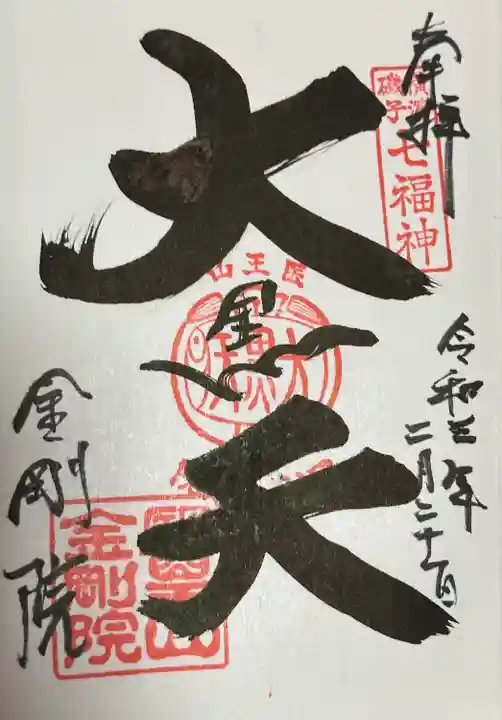 奉拝
横浜磯子
七福神
令和三年
二月二十一日
大黒天
医王山
金剛院
金剛院